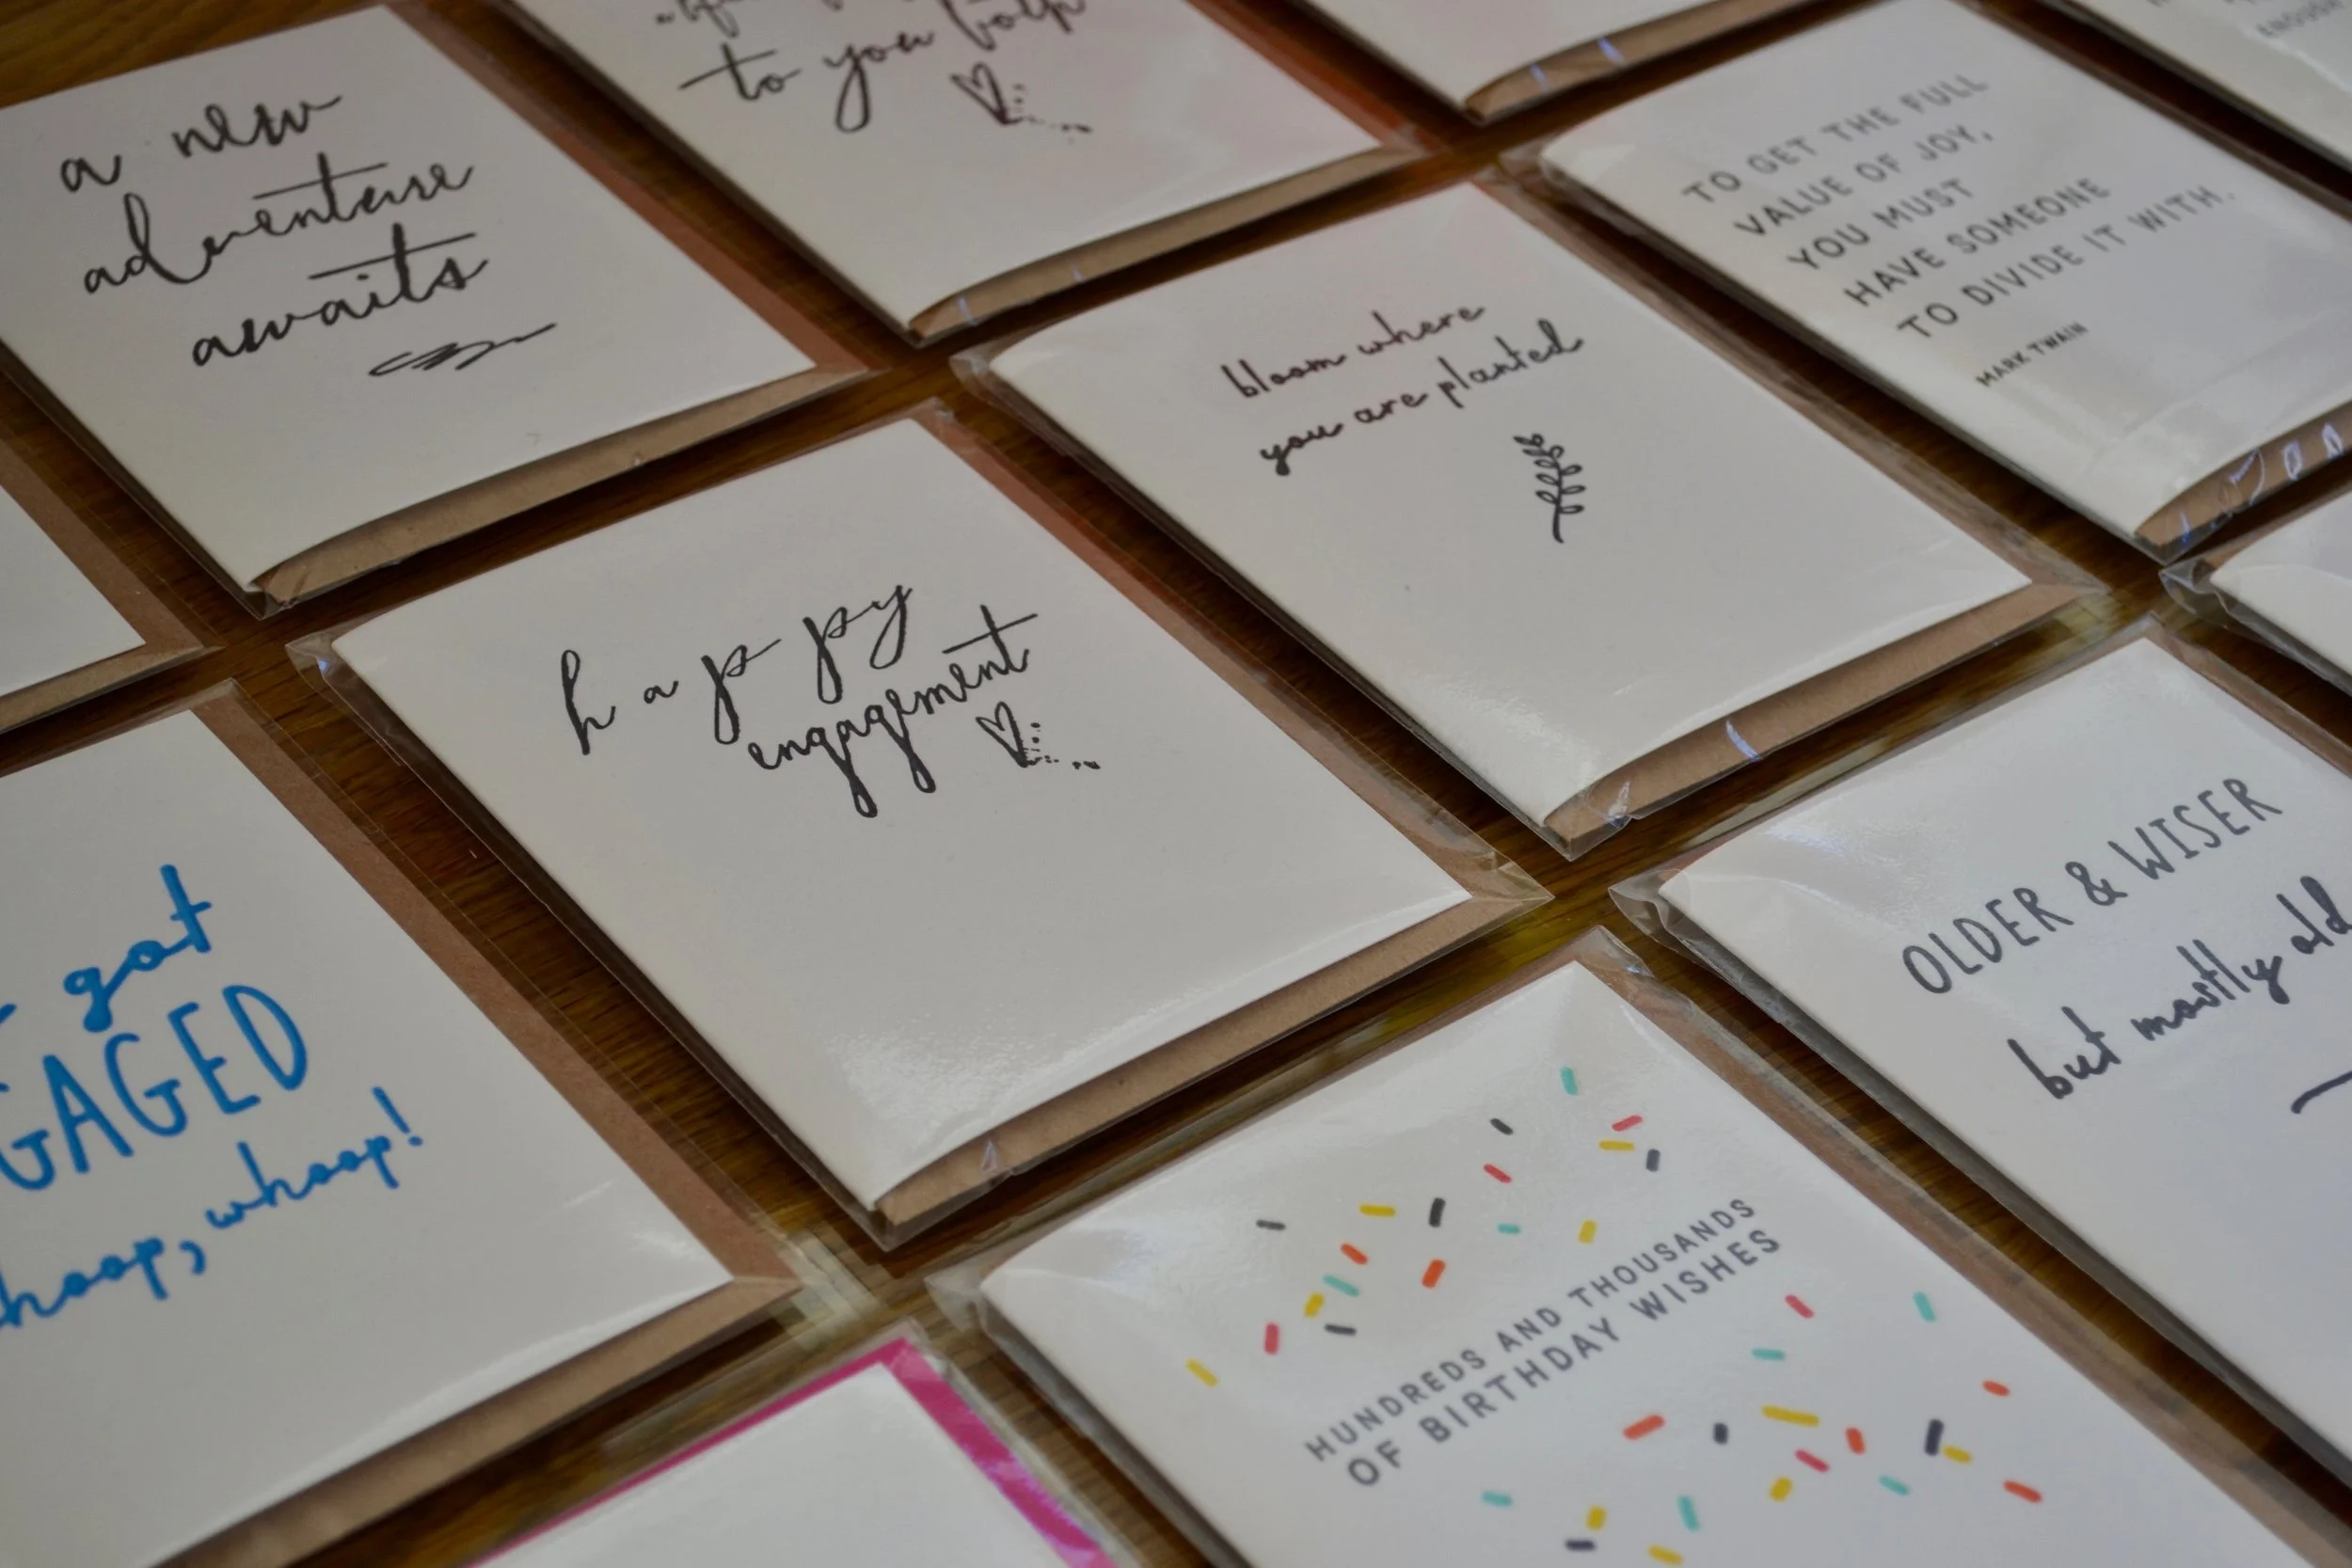 a new
adventure
awaits
to you both
TO GET THE FULL
VALUE OF JOY,
YOU MUST
HAVE SOMEONE
TO DIVIDE IT WITH.
MARK TWAIN
bloom where
you are planted
happy
engagement
got
GAGED
hoop, whoop!
OLDER & WISER
but mostly old
HUNDREDS AND THOUSANDS
OF BIRTHDAY WISHES